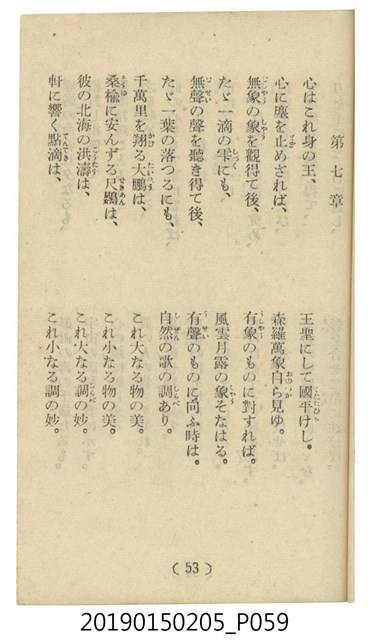 第七章
心はこれ身の王、
王聖にして國平けし。
心に塵を止めされば、
森羅萬象自ら見ゆ。
無象の象を觀得て後、
有象のものに對すれば。
たゞ一滴の雫にも、
風雲月露の象そなはる。
無聲の聲を聽き得て後、
有聲のものに向ふ時は。
たゞ一葉の落つるにも、
自然の歌の調あり。
千萬里を翔る大鵬は、
これ大なる物の美。
桑楡に安んずる尺鷃は、
これ小なる物の美。
彼の北海の洪濤は、
これ大なる調の妙。
軒に響く點滴は、
これ小なる調の妙。
(53)
20190150205_P059